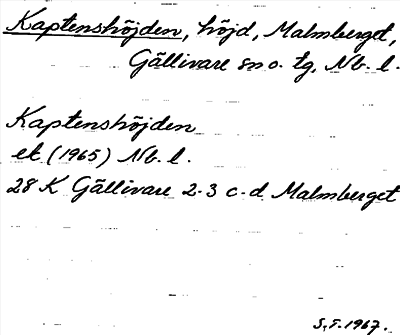 Kaptenshöjden, höjd, Malmberget,
Gällivare sn o. tg, Nb. l.
Kaptenshöjden
ek (1965) Nb. l.
28 K Gällivare 2-3 c-d Malmberget
S.T. 1967.